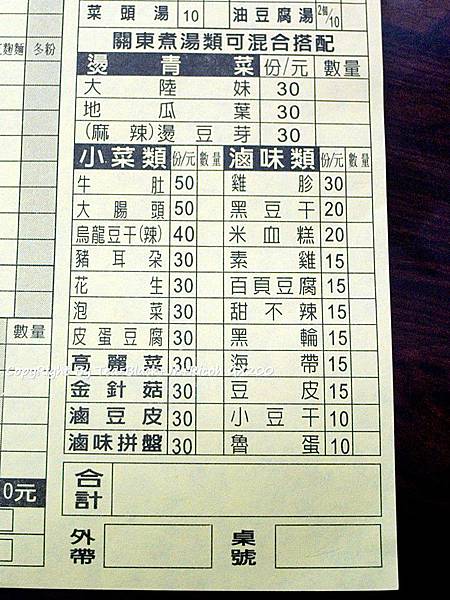 菜頭湯 10 油豆腐湯 2個/10
關東煮湯類可混合搭配
冬粉
燙青菜 份/元 數量
大陸妹 30
地瓜葉 30
(麻辣)燙豆芽 30
小菜類 份/元 數量 滷味類 份/元 數量
牛肚 50 雞胗 30
大腸頭 50 黑豆干 20
烏龍豆干(辣) 40 米血糕 20
豬耳朵 30 素雞 15
花生 30 百頁豆腐 15
泡菜 30 甜不辣 15
數量
皮蛋豆腐 30 黑輪 15
高麗菜 30 海帶 15
金針菇 30 豆皮 15
滷豆皮 30 小豆干 10
滷味拼盤 30 魯蛋 10
0元
合計
外帶 桌號